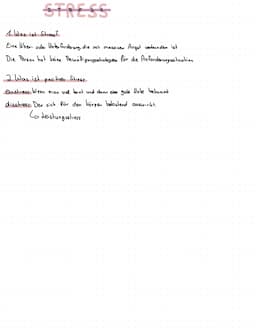 STRESS
1. Was ist Stress?
Eine Über- oder Unterforderung, die mit massiver Angst verbunden ist
Die Person hat keine Bewältigungsstrategien für die Anforderungssituation
2. Was ist positiver Stress
Eustress: Wenn man viel lernt und dann eine gute Note bekommt
disstress: Der sich für den Körper belastend auswirkt
↳ Leistungsstress